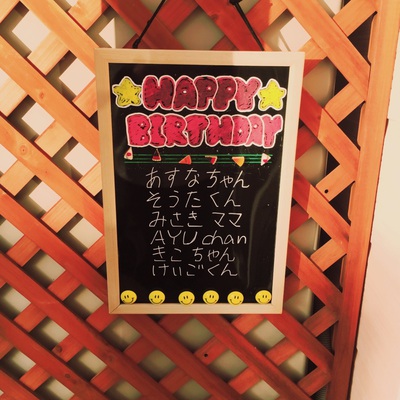 HAPPY
BIRTHDAY
あすなちゃん
そうたくん
みさき ママ
AYU chan
きこちゃん
けいごくん